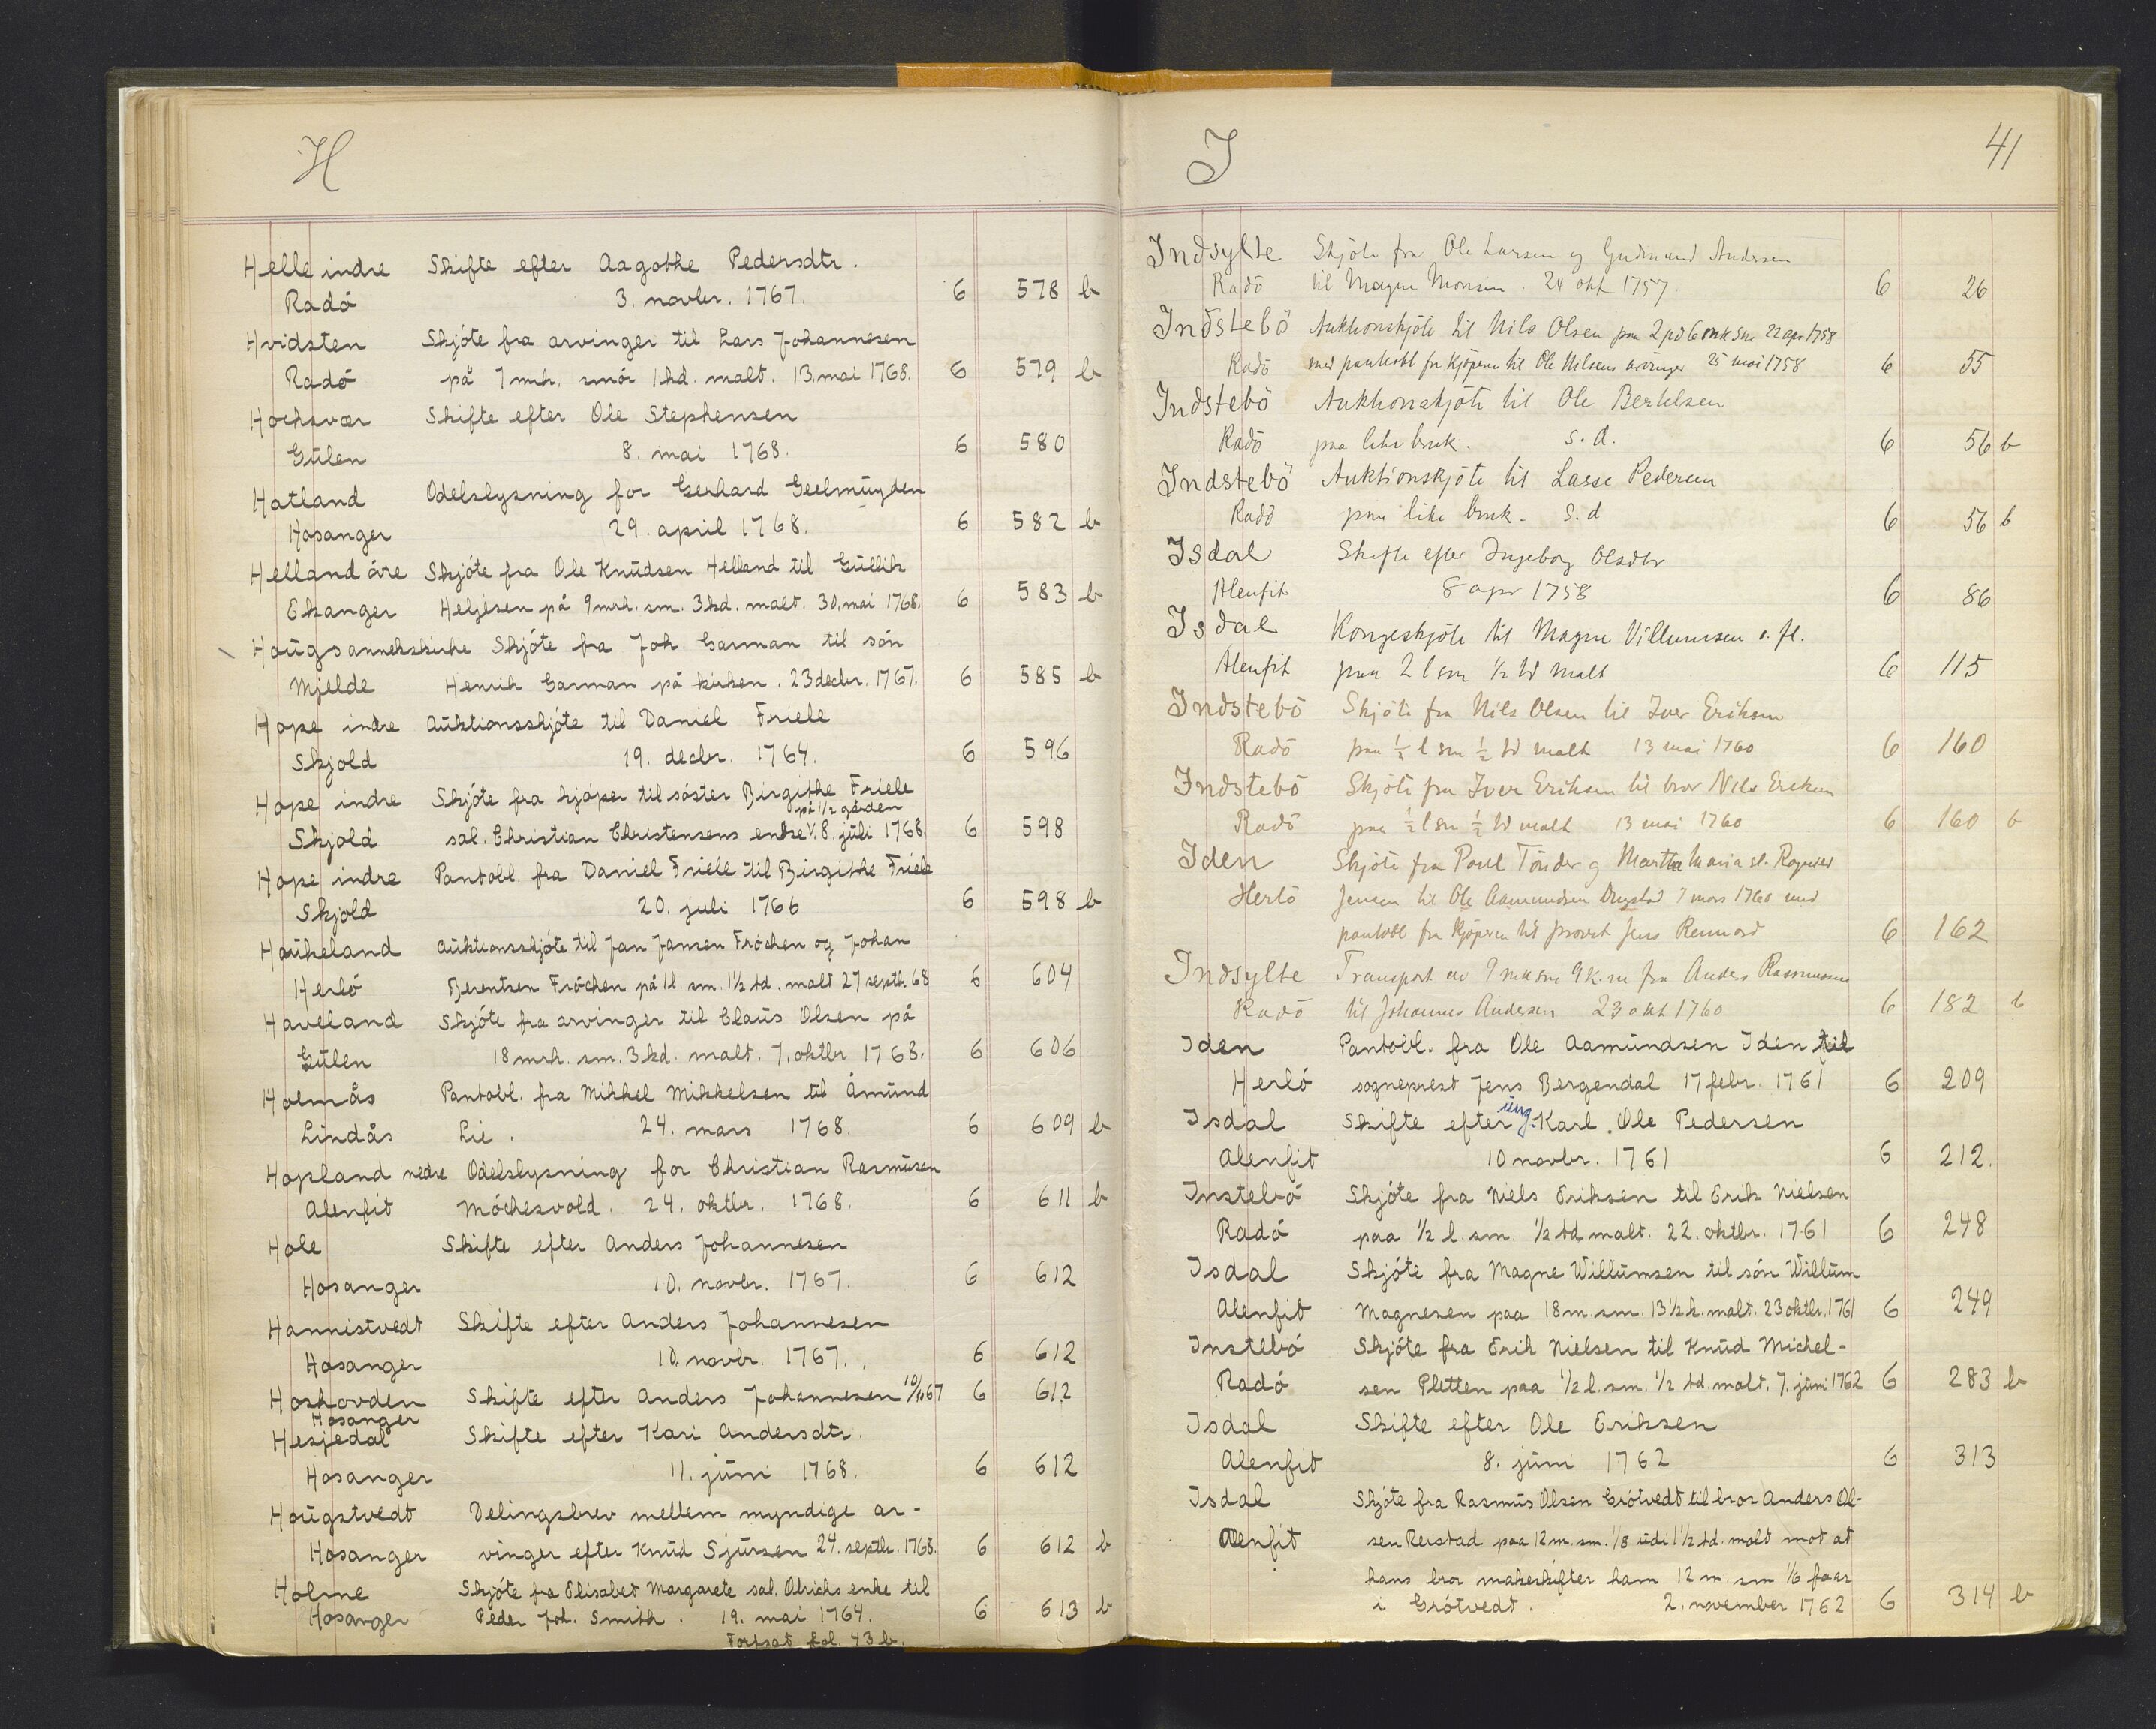 H
Helle indre Skifte efter Aagothe Pedersdtr.
Radö 3. novbr. 1767. 6 578 b
Hvidsten Skjöte fra arvinger til Lars Johannesen
Radö på 7 mrk. smör 1 hd. malt. 13. mai 1768. 6 579 b
Hocksvær Skifte efter Ole Stephensen
Gulen 8. mai 1768. 6 580
Hatland Odelslysning for Gerhard Geelmuyden
Hosanger 29. april 1768. 6 582 b
Helland övre Skjöte fra Ole Knudsen Helland til Gullik
Ekanger Heljesen på 9 mrk. sm. 3 hd. malt. 30. mai 1768. 6 583 b
Hougs annekskirke Skjöte fra Joh. Garman til sön
Mjelde Henrik Garman på kirken. 23 decbr. 1767. 6 585 b
Hope indre Auktionsskjöte til Daniel Friele
Skjold 19. decbr. 1764. 6 596
Hope indre Skjöte fra kjöper til söster Birgithe Friele
på 1/2 gården
Skjold sal. Christian Christensens enke v. 8. juli 1768. 6 598
Hope indre Pantobl. fra Daniel Friele til Birgithe Friele
Skjold 20. juli 1766 6 598 b
Haukeland Auktionsskjöte til Jan Jansen Fröchen og Johan
Herlö Berentsen Fröchen på 1 l. sm. 1 1/2 td. malt 27 septbr. 68 6 604
Haveland Skjöte fra arvinger til Claus Olsen på
Gulen 18 mrk. sm. 3 hd. malt. 7. oktbr 1768. 6 606
Holmås Pantobl. fra Mikkel Mikkelsen til Åmund
Lindås Lie. 24. mars 1768. 6 609 b
Hopland nedre Odelslysning for Christian Rasmusen
Alenfit Möchesvold. 24. oktbr. 1768. 6 611 b
Hole Skifte efter Anders Johannesen
Hosanger 10. novbr. 1767. 6 612
Hannistvedt Skifte efter Anders Johannesen
Hosanger 10. novbr. 1767. 6 612
Hoshovden Skifte efter Anders Johannesen 10/11 67 6 612
Hosanger
Hesjedal Skifte efter Kari Andersdtr.
Hosanger 11. juni 1768. 6 612
Hougstvedt Delingsbrev mellem myndige ar-
Hosanger vinger efter Knud Sjursen 24. septbr. 1768. 6 612 b
Holme Skjöte fra Elisabet Margarete sal. Olrichs enke til
Hosanger Peder Joh. Smith. 19. mai 1764. 6 613 b
Fortsat fol. 43 b.
I 41
Indsylte Skjöte fra Ole Larsen og Gudmund Andersen
Radö til Magne Monsen. 24 okt 1757. 6 26
Indstebö Auktionskjöte til Nils Olsen paa 2 pd 6 mk sm 22 apr 1758
Radö med pantobl fra kjöperen til Ole Nilsens arvinger 25 mai 1758 6 55
Indstebö Auktionskjöte til Ole Bertelsen
Radö paa like bruk. s. d. 6 56 b
Indstebö Auktionskjöte til Lasse Pedersen
Radö paa like bruk. s. d 6 56 b
Isdal Skifte efter Ingeborg Olsdtr
Alenfit 8 apr 1758 6 86
Isdal Kongeskjöte til Magne Villumsen o. fl.
Alenfit paa 2 l sm 1/2 td malt 6 115
Indstebö Skjöte fra Nils Olsen til Iver Eriksen
Radö paa 1/2 l sm 1/2 td malt 13 mai 1760 6 160
Indstebö Skjöte fra Iver Eriksen til bror Nils Eriksen
Radö paa 1/2 l sm 1/2 td malt 13 mai 1760 6 160 b
Iden Skjöte fra Poul Tönder og Martha Maria sl.
Herlö Jensen til Ole Aamundsen 7 mars 1760 med
pantobl fra kjöperen til provst Jens 6 162
Indsylte Transport av 9 mk sm 9 k. fra Anders Rasmussen
Radö til Johannes Andersen 23 okt 1760 6 182 b
Iden Pantobl. fra Ole Aamundsen Iden til
Herlö sogneprest Jens Bergendal 17 febr. 1761 6 209
Isdal Skifte efter ung Karl. Ole Pedersen
Alenfit 10 novbr. 1761 6 212.
Instebö Skjöte fra Niels Eriksen til Erik Nielsen
Radö paa 1/2 l. sm. 1/2 td malt. 22. oktbr. 1761 6 248
Isdal Skjöte fra Magne Willumsen til sön Willum
Alenfit Magnesen paa 18 m. sm. 13 1/2 k. malt. 23 oktbr. 1761 6 249
Instebö Skjöte fra Erik Nielsen til Knud Michel-
Radö sen Pletten paa 1/2 l. sm. 1/2 td. malt. 7. juni 1762 6 283 b
Isdal Skifte efter Ole Eriksen
Alenfit 8. juni 1762 6 313
Isdal Skjöte fra Rasmus Olsen Grötvedt til bror Anders Ol-
Alenfit sen Reistad paa 12 m. sm. 1/8 udi 1 1/2 td. malt mot at
hans bror makeskifter ham 12 m. sm 1/6 faar
i Grötvedt. 2. november 1762 6 314 b